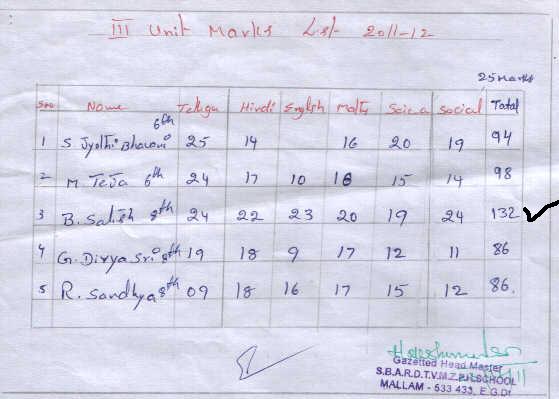 III Unit Marks List 2011-12
25 marks
S.no Name Telugu Hindi English Maths Science Social Total
1 S. Jyothi Bhavani 6th 25 14 16 20 19 94
2 M. Teja 6th 24 17 10 18 15 14 98
3 B. Satish 8th 24 22 23 20 19 24 132
4 G. Divya Sri 8th 19 18 9 17 12 11 86
5 R. Sandhya 8th 09 18 16 17 15 12 86.
Gazetted Head Master
S.B.A.R.D.T.V.M.Z.P.H.SCHOOL
MALLAM - 533 433, E.G.Dt